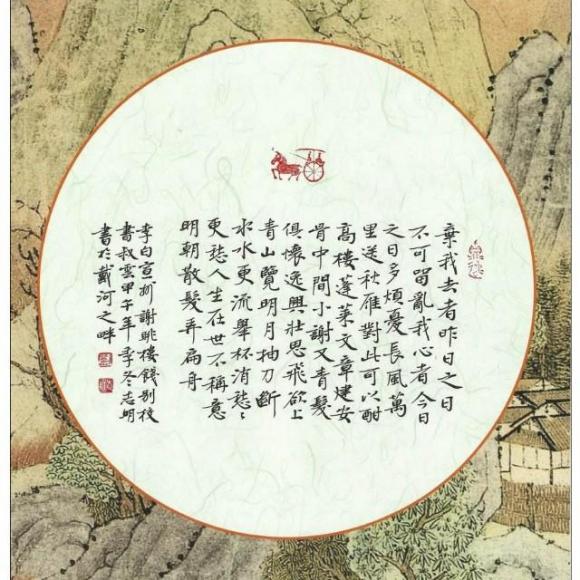 棄我去者昨日之日
不可留亂我心者今日
之日多煩憂長風萬
里送秋雁對此可以酣
高樓蓬萊文章建安
骨中間小謝又青髮
俱懷逸興壯思飛欲上
青山覽明月抽刀斷
水水更流舉杯消愁〻
更愁人生在世不稱意
明朝散髮弄扁舟
李白宣州謝朓樓餞別校
書叔雲甲午年季冬志明
書於戴河之畔